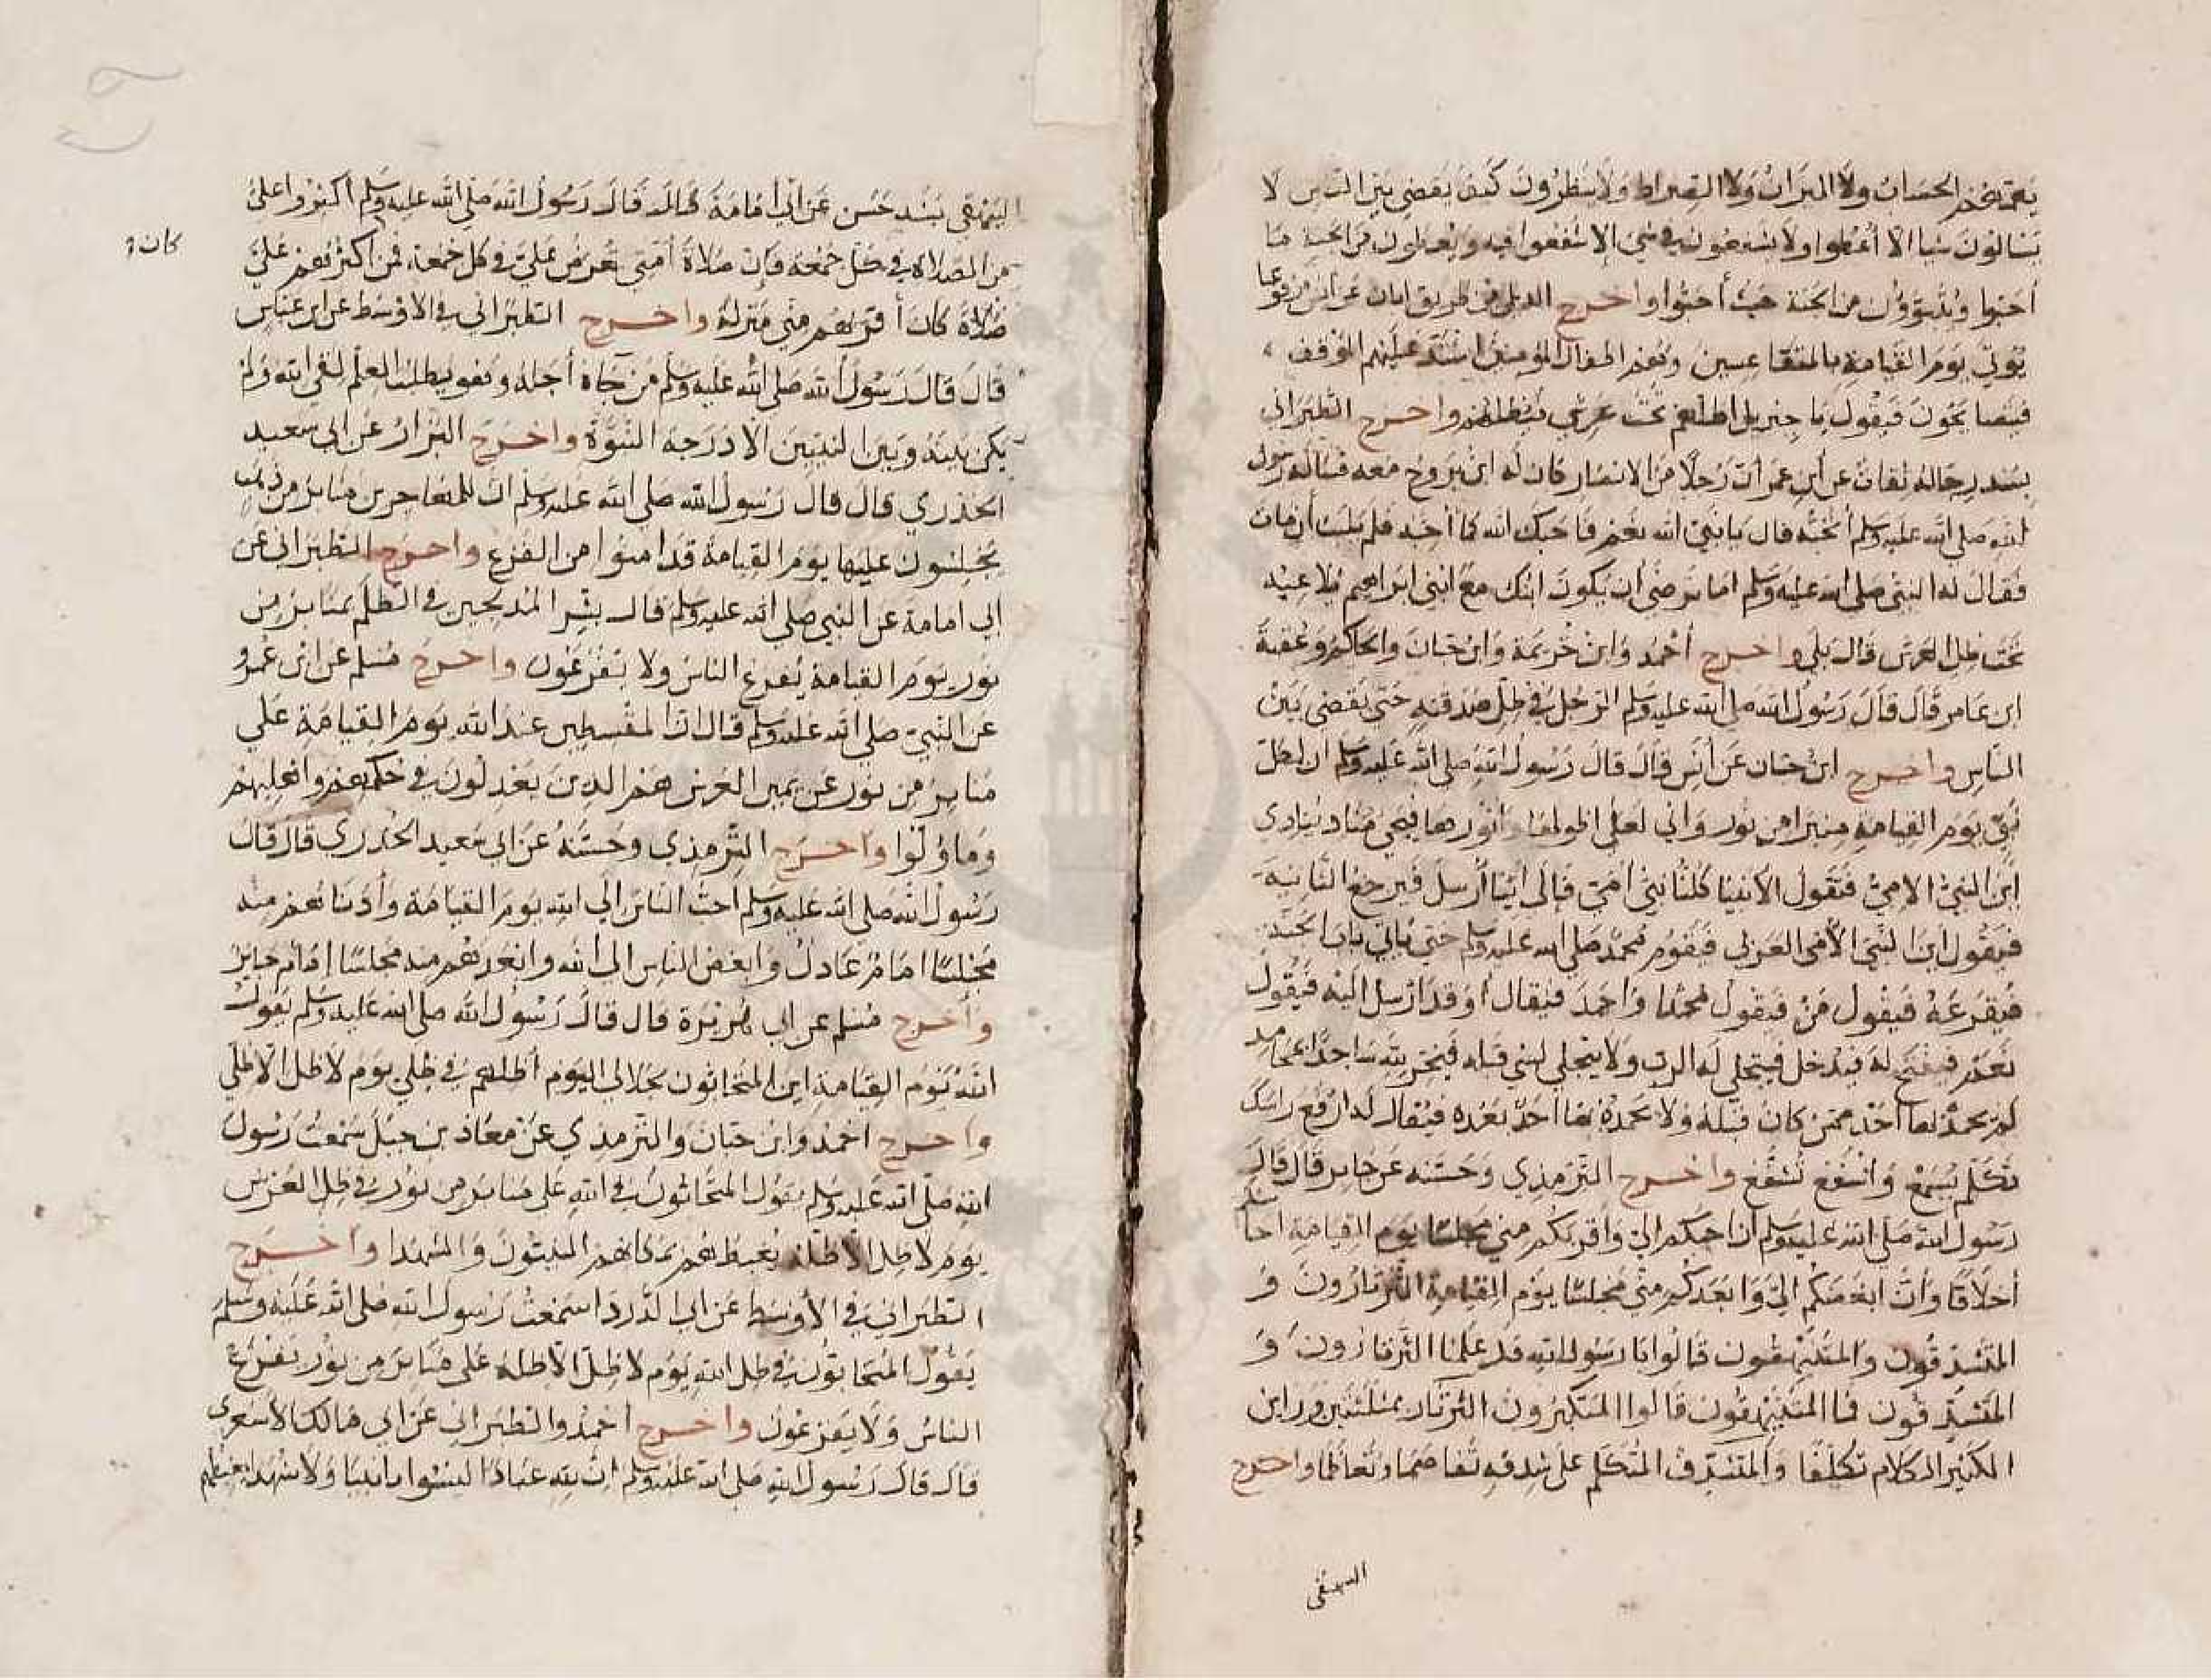 يهمهم الحساب ولا الميزان ولا الصراط ولا ينظرون كيف يقضى بين الناس لا
يسالون شيا الا اعطوا ولا يشفعون في شي الا شفعوا فيه ويعطون من الجنة ما
احبوا ويتبوؤن من الجنة حيث أحبوا واخرج الديلمي من طريق ابان عن انس مرفوعا
يوتى يوم القيامة وهم اطفال المؤمنين اشتد عليهم الموقف
فيتصايحون فيقول يا جبريل اظلهم تحت عرشي فيظلهم واخرج الطبراني
بسند رجاله ثقات عن ابن عمر ان رجلا من الانصار كان له ابن يروح معه فساله رسول
الله صلى الله عليه وسلم أتحبه قال يا نبي الله نعم فاحبك الله كما أحبه فلم يلبث أن مات
فقال له النبي صلى الله عليه وسلم اما ترضى ان يكون ابنك مع ابني ابراهيم يلاعبه
تحت ظل العرش قال بلى واخرج أحمد وابن خزيمة وابن حبان والحاكم وعقبة
ابن عامر قال قال رسول الله صلى الله عليه وسلم الرجل في ظل صدقته حتى يقضى بين
الناس واخرج ابن حبان عن أنس قال قال رسول الله صلى الله عليه وسلم ان لكل
نبي يوم القيامة منبرا من نور واني لعلى اطولها وانورها فيجي مناد ينادي
اين النبي الامي فتقول الأنبيا كلنا نبي أمي فإلى أينا أرسل فيرجع الثانية
فيقول اين النبي الأمي العربي فيقوم محمد صلى الله عليه وسلم حتى ياتي باب الجنة
فيقرعه فيقول من فيقول محمد واحمد فيقال أوقد ارسل اليه فيقول
نعم فيفتح له فيدخل فيتجلى له الرب ولا يتجلى لشي قبله فيخر لله ساجدا بمحامد
لم يحمده بها أحد ممن كان قبله ولا يحمده بها أحد بعده فيقال له ارفع راسك
تكلم تسمع واشفع تشفع واخرج الترمذي وحسنه عن جابر قال قال
رسول الله صلى الله عليه وسلم ان احبكم الي واقربكم مني مجلسا يوم القيامة احاسنكم
أخلاقا وأن ابغضكم الي وابعدكم مني مجلسا يوم القيامة الثرثارون و
المتشدقون والمتفيهقون قالوا يا رسول الله قد علمنا الثرثارون و
المتشدقون فما المتفيهقون قالوا المتكبرون الثرثار بمثلثتين وراين
الكثير الكلام تكلفا والمتشدق المتكلم على شدقه تفاصحا وتعاظما واخرج
البيهقي
البيهقي بسند حسن عن ابي أمامة قال قال رسول الله صلى الله عليه وسلم أكثروا علي
من الصلاة في كل جمعة فإن صلاة أمتي تعرض علي في كل جمعة فمن اكثرهم علي
كان
صلاة كان أقربهم مني منزلة واخرج الطبراني في الاوسط عن ابن عباس
قال قال رسول الله صلى الله عليه وسلم من جاه أجله وهو يطلب العلم لقي الله ولم
يكن بينه وبين النبيين الا درجة النبوة واخرج البزار عن ابي سعيد
الخدري قال قال رسول الله صلى الله عليه وسلم ان للمهاجرين منابر من ذهب
يجلسون عليها يوم القيامة قد امنوا من الفزع واخرج الطبراني عن
ابي امامة عن النبي صلى الله عليه وسلم قال بشر المدلجين في الظلم بمنابر من
نور يوم القيامة يفزع الناس ولا يفزعون واخرج مسلم عن ابن عمرو
عن النبي صلى الله عليه وسلم قال ان المقسطين عند الله يوم القيامة على
منابر من نور عن يمين العرش هم الذين يعدلون في حكمهم واهليهم
وما ولوا واخرج الترمذي وحسنه عن ابي سعيد الخدري قال قال
رسول الله صلى الله عليه وسلم احب الناس الي الله يوم القيامة وأدناهم منه
مجلسا امام عادل وابغض الناس الى الله وابعدهم منه مجلسا إمام جاير
وأخرج مسلم عن ابي هريرة قال قال رسول الله صلى الله عليه وسلم يقول
الله يوم القيامة اين المتحابون بجلالي اليوم أظلهم في ظلي يوم لا ظل الا ظلي
واخرج احمد وابن حبان والترمذي عن معاذ بن جبل سمعت رسول
الله صلى الله عليه وسلم يقول المتحابون في الله على منابر من نور في ظل العرش
يوم لا ظل الا ظله يغبطهم بمكانهم النبيون والشهدا واخرج
الطبراني في الأوسط عن ابي الدردا سمعت رسول الله صلى الله عليه وسلم
يقول المتحابون في ظل الله يوم لا ظل الا ظله على منابر من نور يفزع
الناس ولا يفزعون واخرج احمد والطبراني عن ابي مالك الاشعري
قال قال رسول الله صلى الله عليه وسلم ان لله عبادا ليسوا بانبيا ولا شهدا يغبطهم